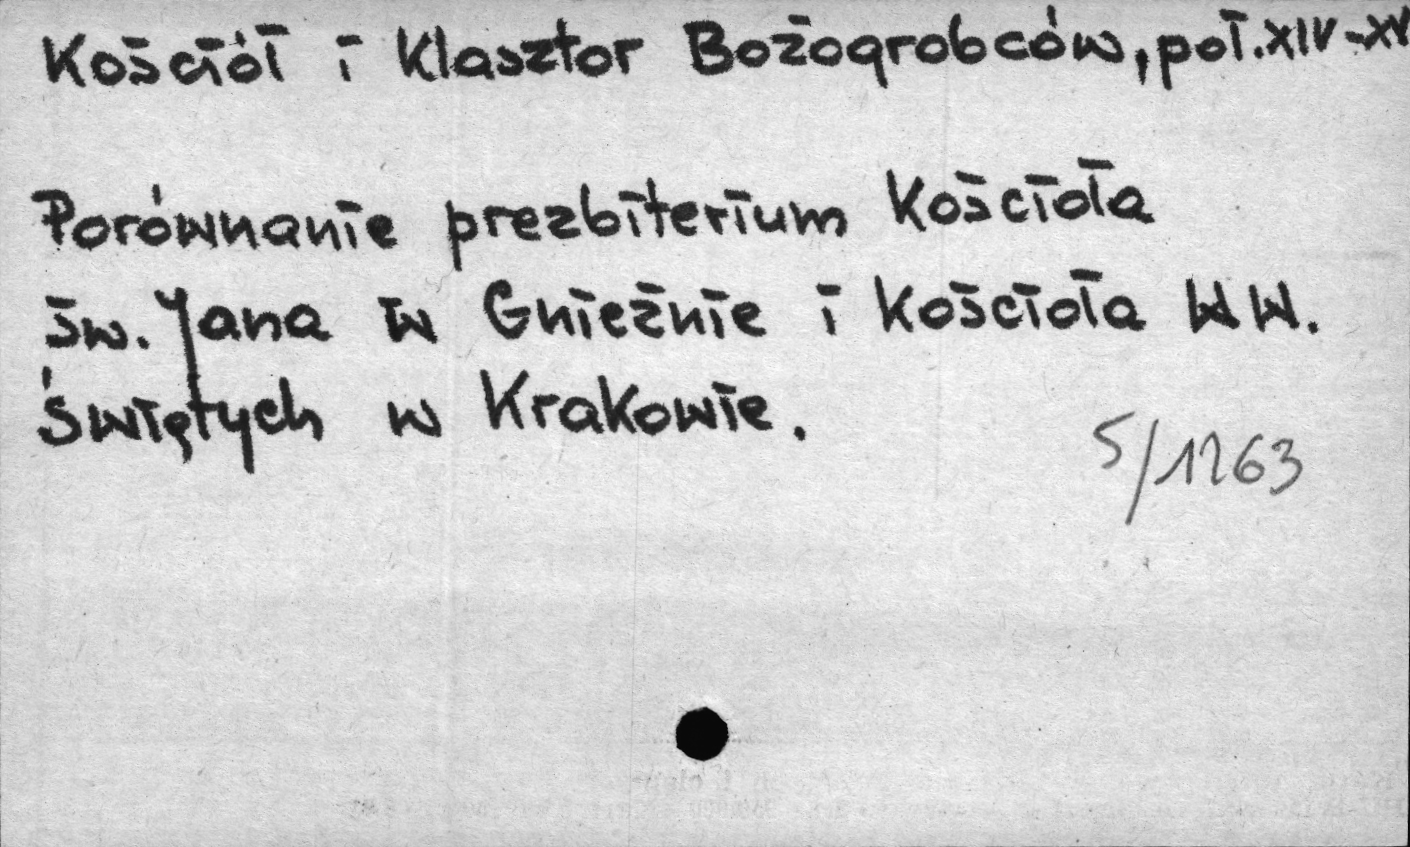 Kościół i Klasztor Bożogrobców, poł. XIV-XV
Porównanie prezbiterium Kościoła
św. Jana w Gnieźnie i Kościoła WW.
Świętych w Krakowie.
S/1263